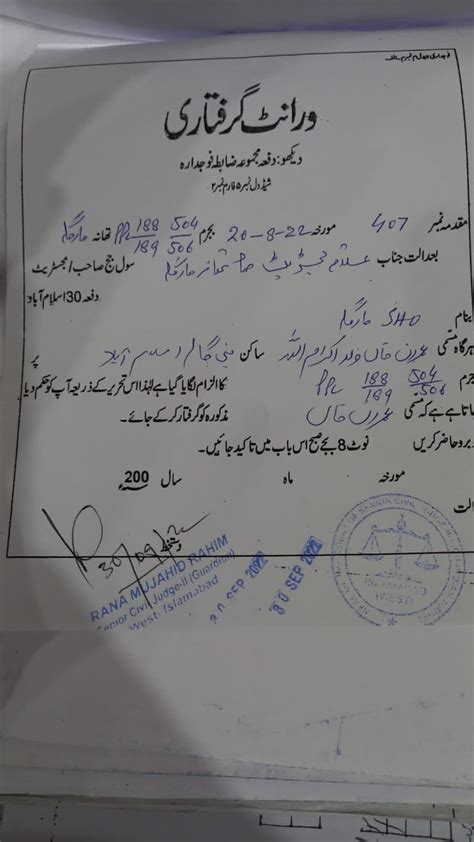 ورانٹ گرفتاری
دیکھو: دفعہ مجموعہ ضابطہ فوجدارہ
شیڈول نمبر ۵ فارم نمبر ۲
مقدمہ نمبر 407 مورخہ 20-8-22 بجرم PPC 188/189 504/506 تھانہ مارگلہ
بعدالت جناب علاقہ مجسٹریٹ صاحب تھانہ مارگلہ سول جج صاحب/مجسٹریٹ
دفعہ 30 اسلام آباد
بنام SHO مارگلہ
ہر گاہ مسمی عمران خان ولد اکرام اللہ ساکن بنی گالہ اسلام آباد پر
جرم PPC 188/189 504/506 کا الزام لگایا گیا ہے لہٰذا اس تحریر کے ذریعہ آپ کو حکم دیا
جاتا ہے کہ مسمی عمران خان مذکورہ کو گرفتار کر کے جائے۔
روبرو حاضر کریں نوٹ 8 بجے صبح اس باب میں تاکید جائیں۔
مورخہ ماہ سال 200
دستخط
30/09/22
RANA MUJAHID RAHIM
Senior Civil Judge-II (Guardian)
West-Islamabad
30 SEP 2022
30 SEP 2022
ISLAMABAD
WEST